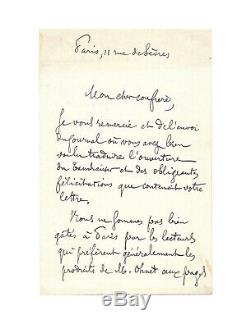 Paris, 11 rue de Sèvres
Mon cher confrère,
Je vous remercie et de l'envoi
du journal où vous avez bien
voulu traduire l'ouverture
du et des obligeantes
félicitations que contenait votre
lettre.
Nous ne sommes pas bien
gâtés à Paris par les lecteurs
qui préfèrent généralement les
produits de M. Ohnet aux pages